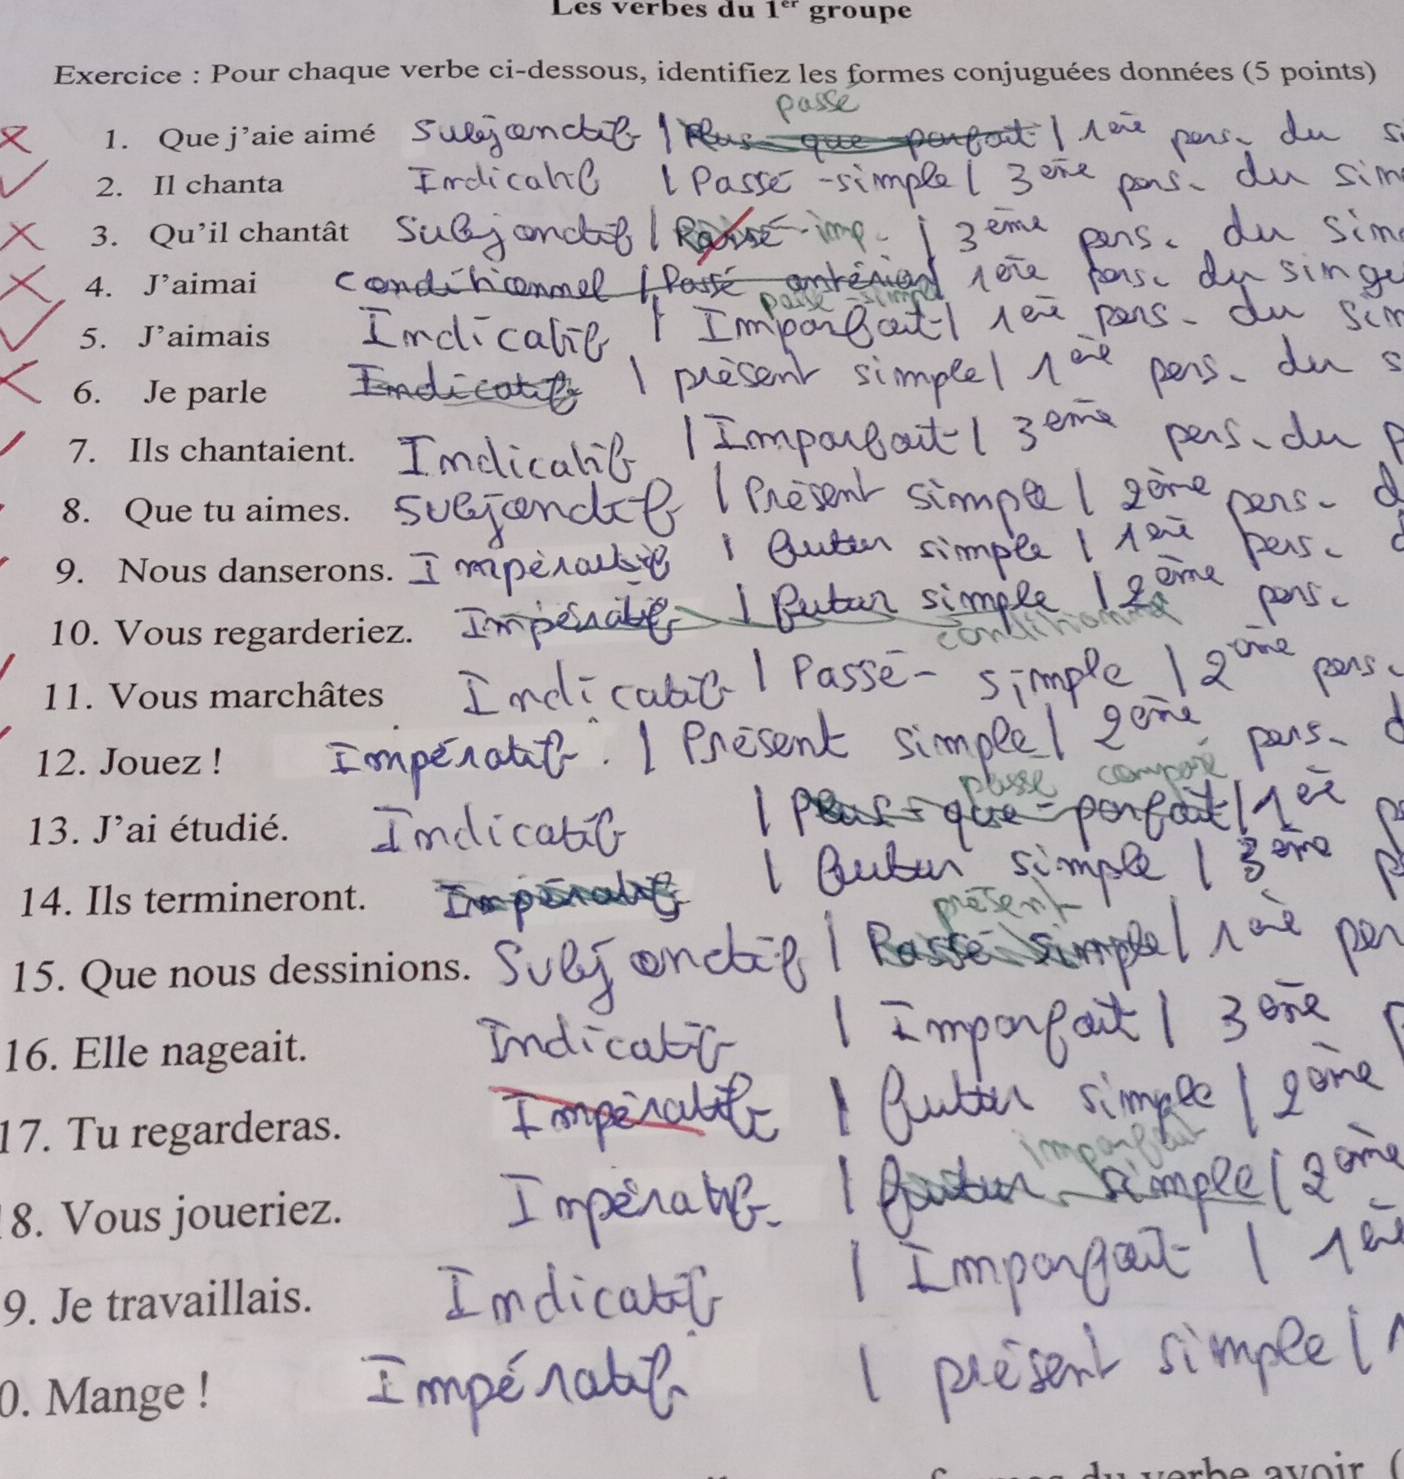 Les verbes du 1er groupe
Exercice : Pour chaque verbe ci-dessous, identifiez les formes conjuguées données (5 points)
passé
1. Que j'aie aimé Subjonctif | Plus-que-parfait | 1ère pers. du s
2. Il chanta Indicatif | Passé-simple | 3ème pers. du sim
3. Qu'il chantât Subjonctif | Passé-imp. | 3ème pers. du sim
4. J'aimai Conditionnel | Passé antérieur 1ère pers. du singu
passé-simple
5. J'aimais Indicatif | Imparfait | 1ère pers. du sim
6. Je parle Indicatif | présent simple | 1ère pers. du s
7. Ils chantaient. Indicatif | Imparfait | 3ème pers. du p
8. Que tu aimes. Subjonctif | Présent simple | 2ème pers. d
9. Nous danserons. Impératif | futur simple | 1ère pers. d
10. Vous regarderiez. Impératif | futur simple | 2ème pers.
conditionnel
11. Vous marchâtes Indicatif | Passé-simple | 2ème pers.
12. Jouez ! Impératif. | Présent simple | 2ème pers. d
passé composé
13. J'ai étudié. Indicatif | Plus-que-parfait | 1ère p
14. Ils termineront. Impératif | futur simple | 3ème p
présent
15. Que nous dessinions. Subjonctif | Passé simple | 1ère per
16. Elle nageait. Indicatif | Imparfait | 3ème p
17. Tu regarderas. Impératif | futur simple | 2ème
imparfait
8. Vous joueriez. Impératif. | futur simple | 2ème
9. Je travaillais. Indicatif | Imparfait | 1ère
0. Mange ! Impératif. | présent simple | 1
du verbe avoir (